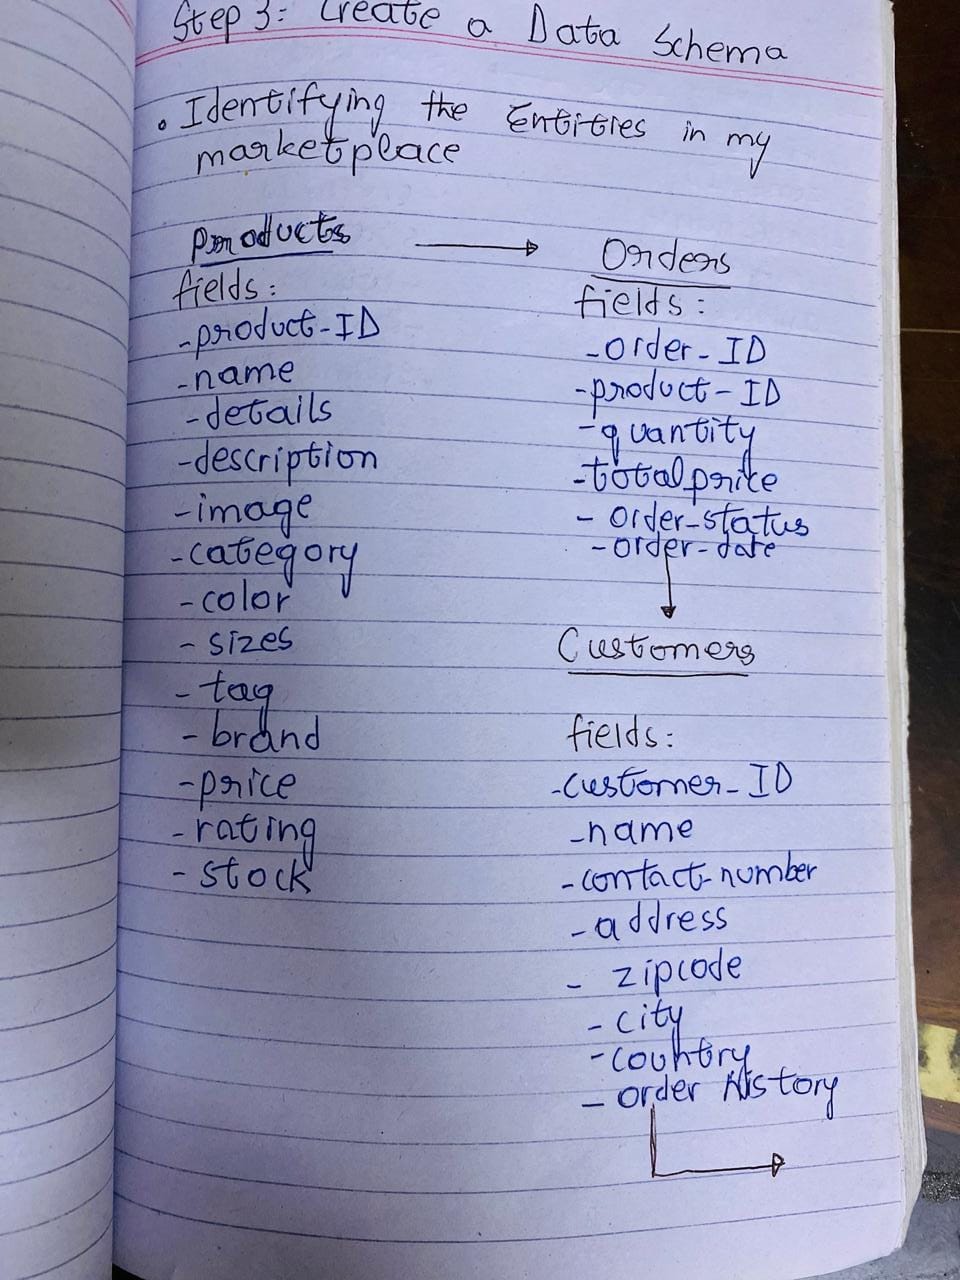 Step 3: Create a Data Schema
. Identifying the Entities in my
marketplace
Products
fields:
-product-ID
-name
-details
-description
-image
-category
-color
- sizes
- tag
- brand
-price
-rating
- stock
Orders
fields:
-order-ID
-product-ID
-quantity
-total price
- order-status
-order-date
Customers
fields:
-customer-ID
-name
-contact-number
-address
- zipcode
-city
-country
- order history